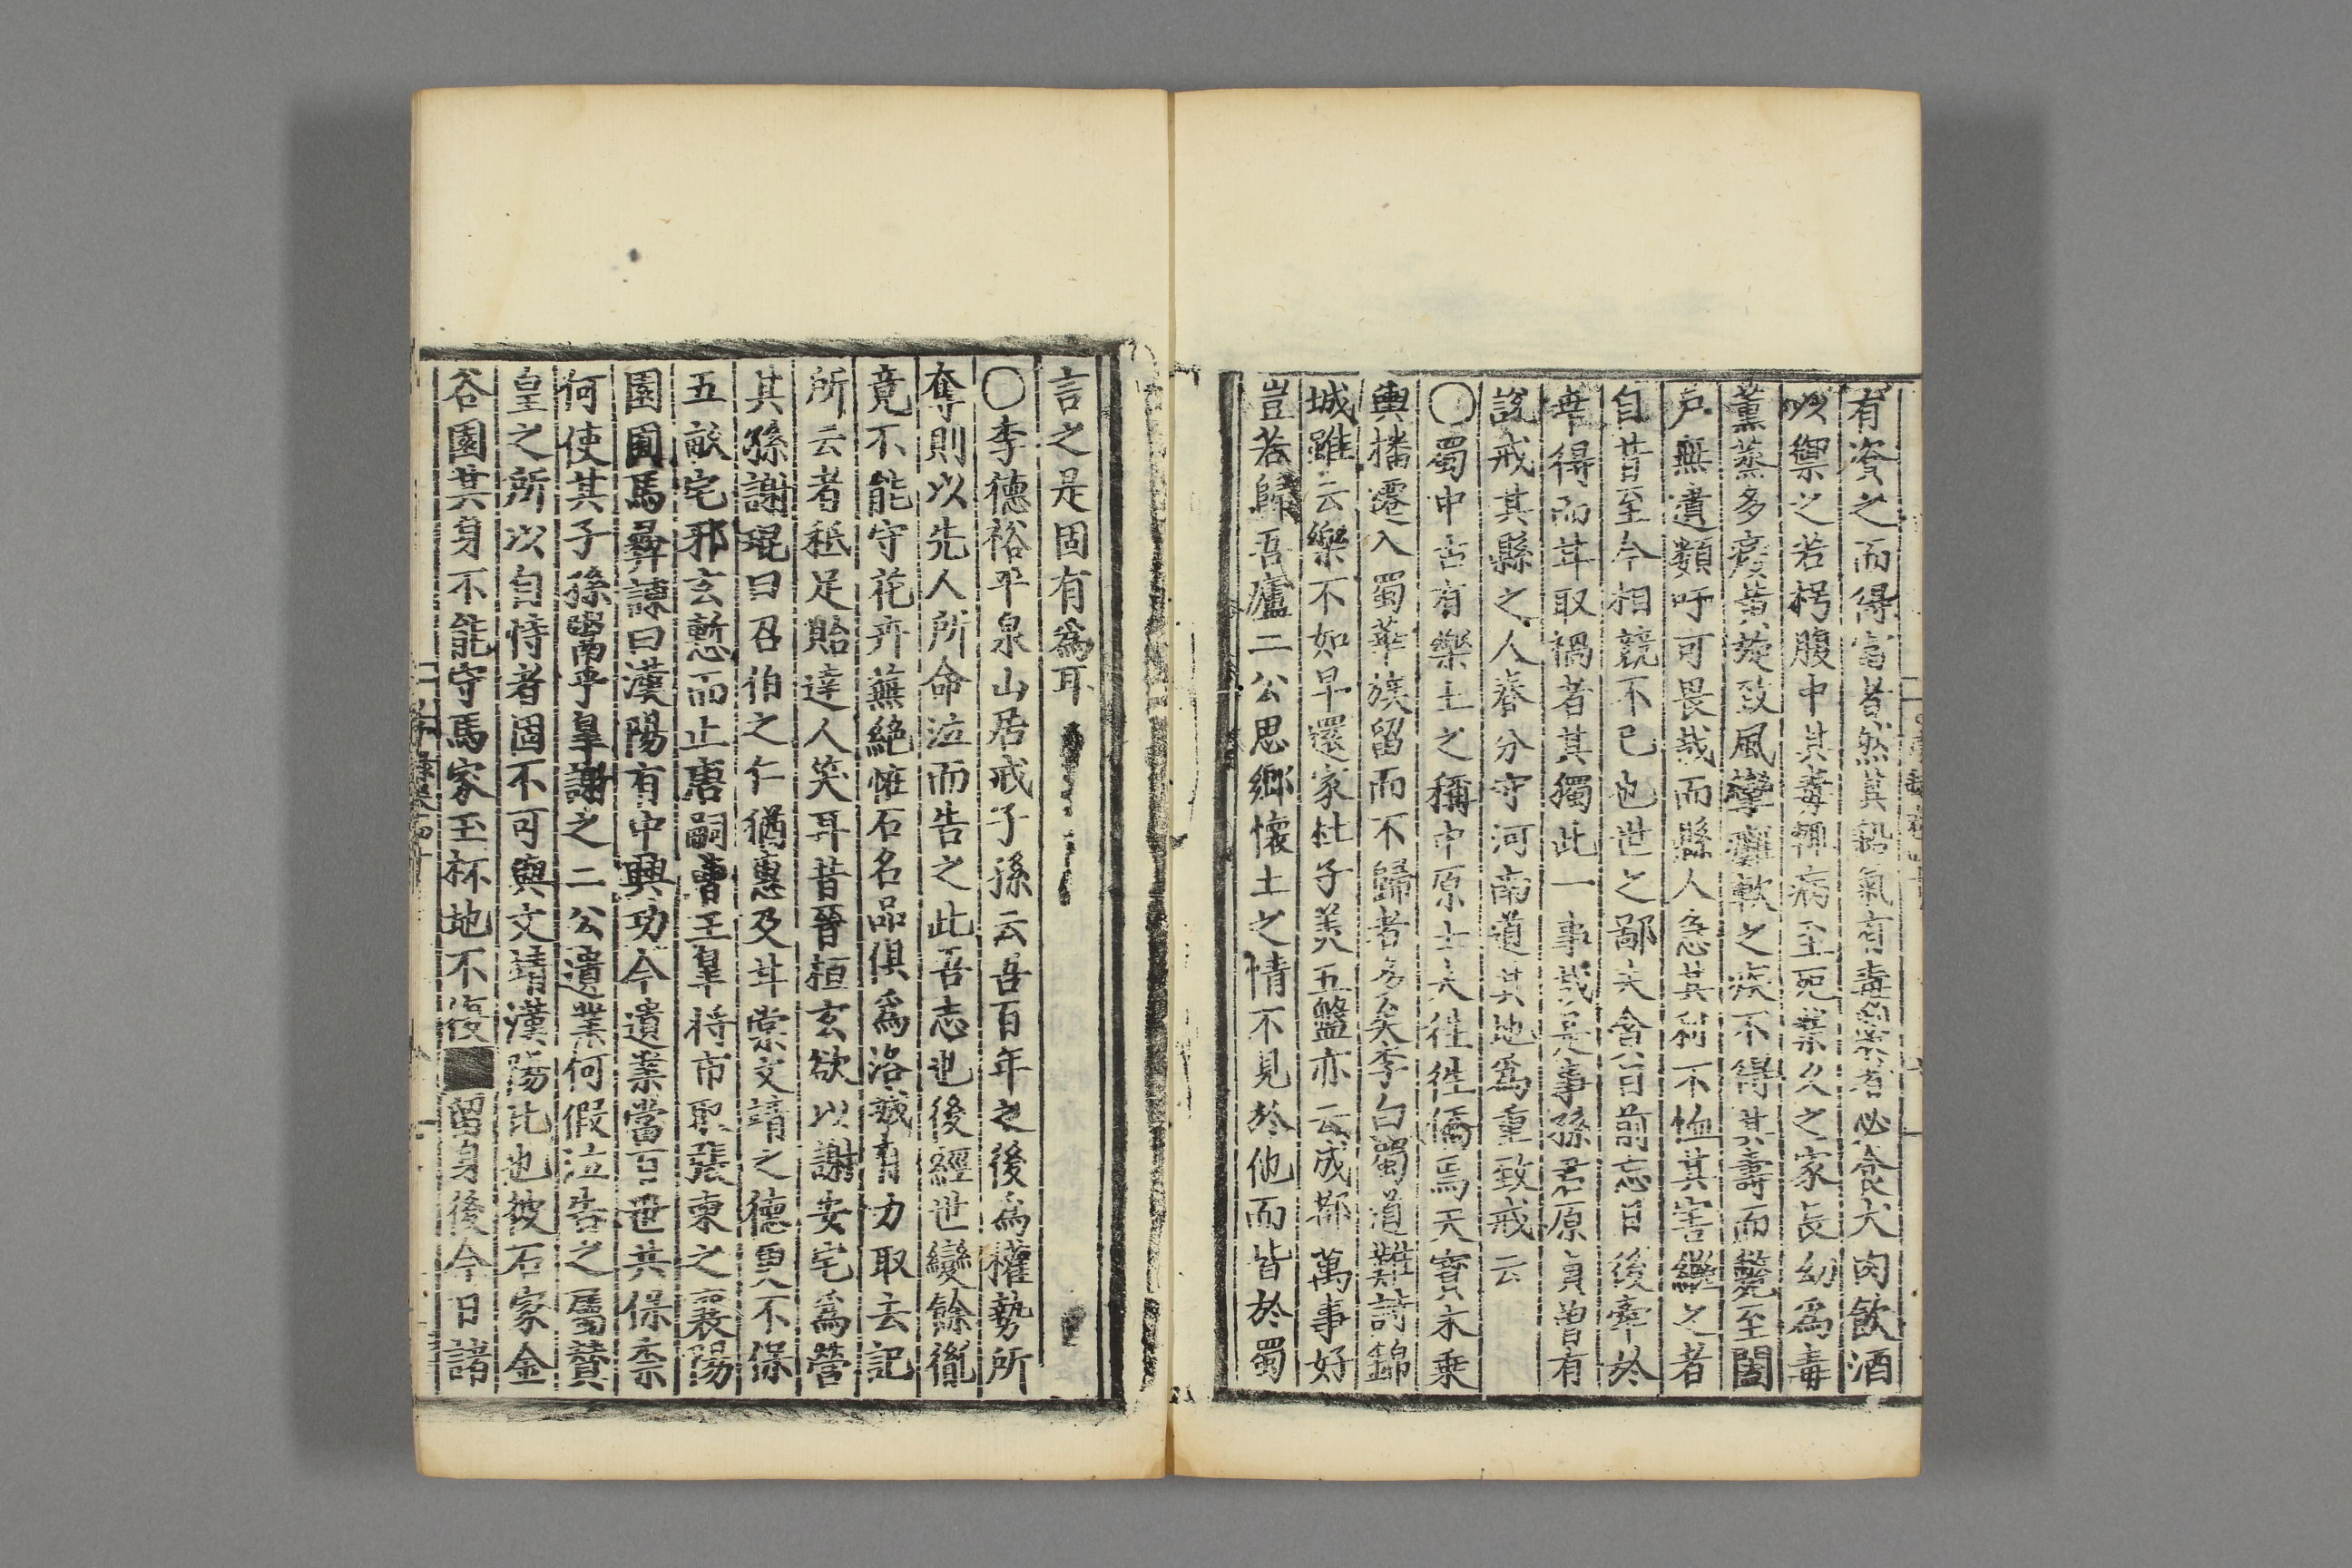 有資之而得富者然其鉛氣有毒業者必食犬肉飲酒
以禦之若枵腹中其毒輒病至死業久之家長幼爲毒
薰蒸多痿黃旋致風攣癱軟之疾不得其壽而斃至闔
戶無遺類吁可畏哉而縣人急其利不恤其害繼之者
自昔至今相競不已也世之鄙夫貪目前忘日後牽於
苟得而甘取禍者其獨此一事哉是事孫君原貞曾有
說戒其縣之人春分守河南道其地爲重致戒云
〇蜀中古有樂土之稱中原士夫往往僑焉天寶末乘
輿播遷入蜀華族留而不歸者多矣李白蜀道難詩錦
城雖云樂不如早還家杜子美五盤亦云成都萬事好
豈若歸吾廬二公思鄉懷土之情不見於他而皆於蜀
言之是固有爲耳
〇李德裕平泉山居戒子孫云吾百年之後爲權勢所
奪則以先人所命泣而告之此吾志也後經世變餘胤
竟不能守花卉蕪絕怪石名品俱爲洛城有力取去記
所云者秪足貽達人笑耳昔晉桓玄欲以謝安宅爲營
其孫謝琨曰召伯之仁猶惠及甘棠文靖之德更不保
五畝宅邪玄慙而止唐嗣曹王皋將市取張柬之襄陽
園圃馬彝諫曰漢陽有中興功今遺業當百世共保柰
何使其子孫鬻乎皋謝之二公遺業何假泣告之屬贊
皇之所以自恃者固不可與文靖漢陽比也彼石家金
谷園其身不能守馬家至杯地不復■留身後今日諸